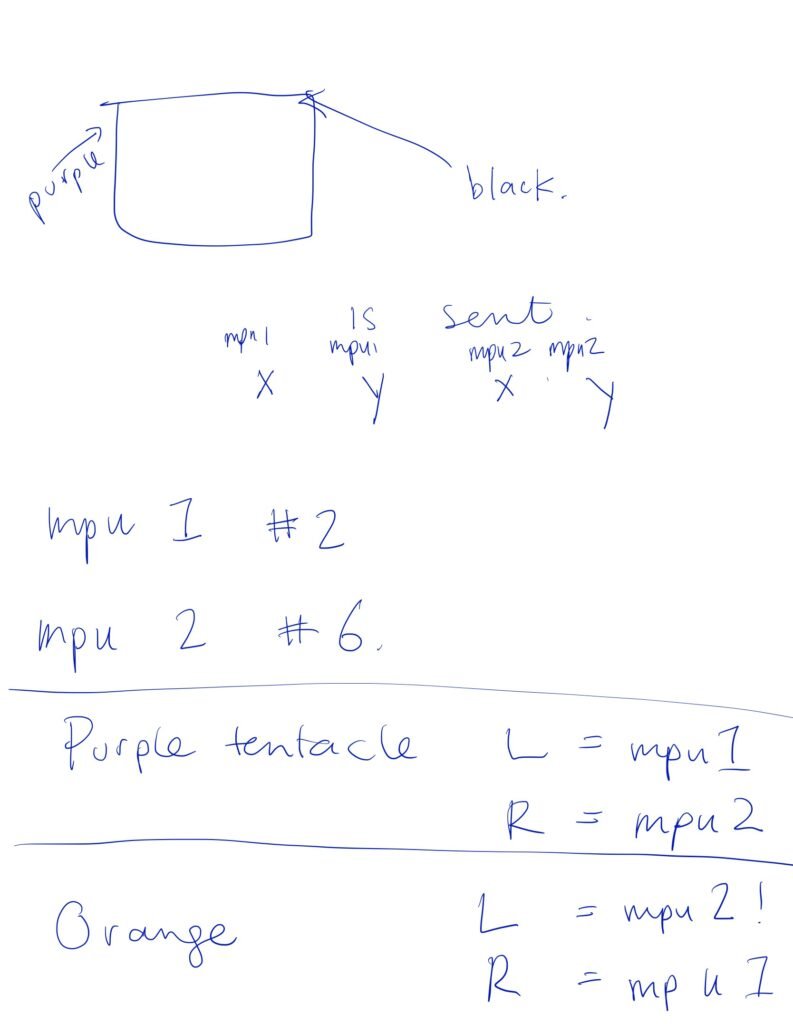 purple
black.
is sent.
mpu1 mpu1 mpu2 mpu2
X Y X Y
mpu 1 #2
mpu 2 #6.
Purple tentacle L = mpu 1
R = mpu 2
Orange L = mpu 2!
R = mpu 1